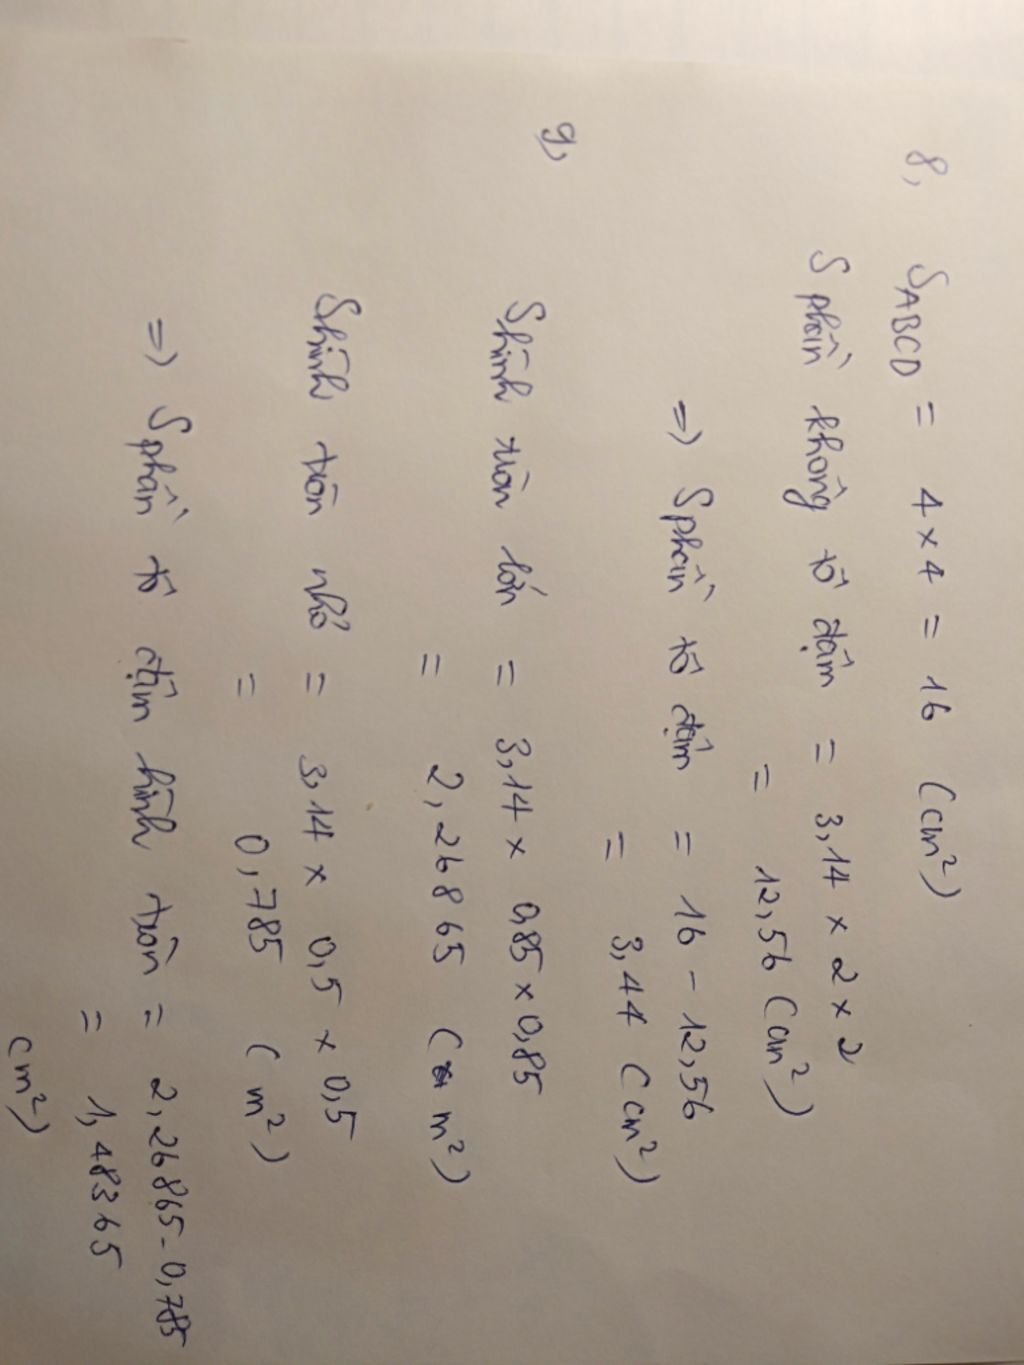 8,
S ABCD = 4 × 4 = 16 (cm²)
S phần không tô đậm = 3,14 × 2 × 2
= 12,56 (cm²)
=> S phần tô đậm = 16 - 12,56
= 3,44 (cm²)
9,
S hình tròn lớn = 3,14 × 0,85 × 0,85
= 2,26865 (m²)
S hình tròn nhỏ = 3,14 × 0,5 × 0,5
= 0,785 (m²)
=> S phần tô đậm hình tròn = 2,26865 - 0,785
= 1,48365
cm²)